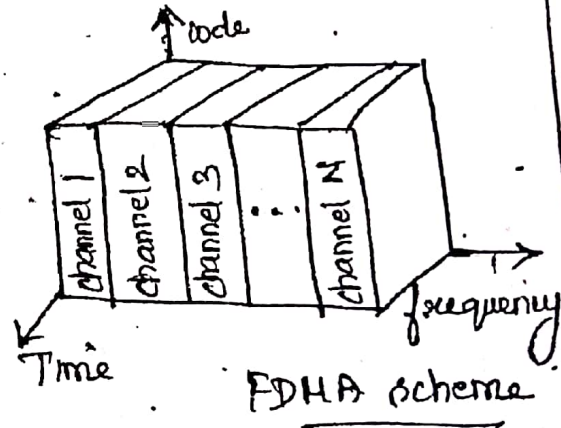 code
channel 1
channel 2
channel 3
...
channel N
frequency
Time
FDMA scheme